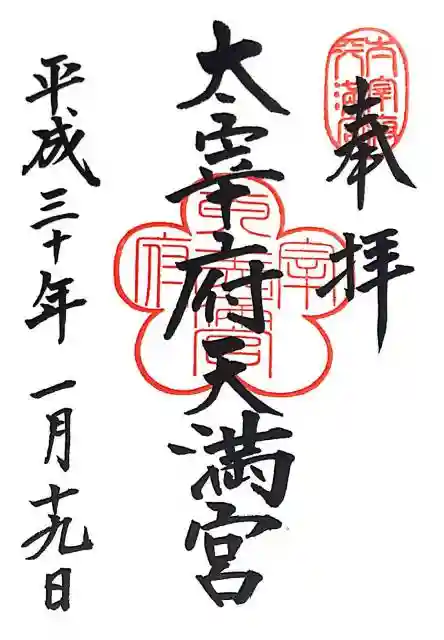 奉拝
太宰府天満宮
平成三十年一月十九日